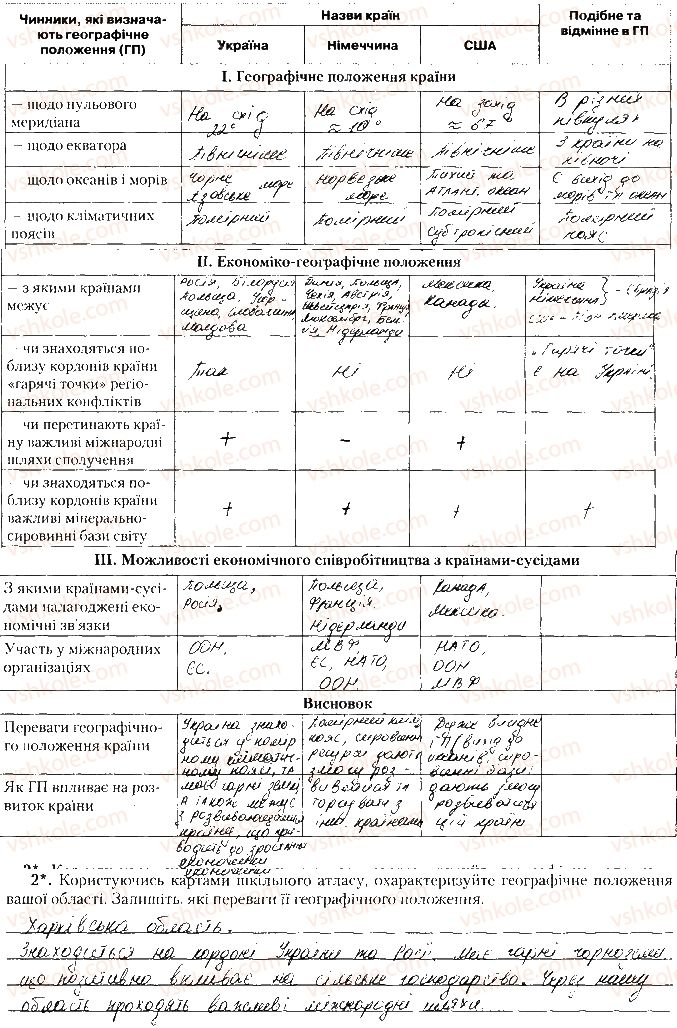 Чинники, які визнача-
ють географічне
положення (ГП)
Назви країн
Подібне та
відмінне в ГП
Україна
Німеччина
США
І. Географічне положення країни
– щодо нульового
меридіана
На схід
22°
На схід
≈ 10°
На захід
≈ 67°
В різних
півкулях
– щодо екватора
Північніше
Північніше
Північніше
3 країни на
півночі
– щодо океанів і морів
Чорне море
Азовське
Норвезьке
море
Тихий та
Атлант. океан
Є вихід до
морів і океан
– щодо кліматичних
поясів
Помірний
Помірний
Помірний
Субтропічний
Помірний
пояс
ІІ. Економіко-географічне положення
– з якими країнами
межує
Росія, Білорусія
Польща, Угор-
щина, Словаччина
Молдова
Данія, Польща,
Чехія, Австрія,
Швейцарія, Франція
Люксембург, Бель-
гія Нідерланди
Мексика
Канада
Україна
Німеччина
США
– чи знаходяться по-
близу кордонів країни
«гарячі точки» регіо-
нальних конфліктів
Так
Ні
Ні
"Гарячі точки"
є на Україні
– чи перетинають краї-
ну важливі міжнародні
шляхи сполучення
+
–
+
– чи знаходяться по-
близу кордонів країни
важливі мінерально-
сировинні бази світу
+
+
+
+
ІІІ. Можливості економічного співробітництва з країнами-сусідами
З якими країнами-сусі-
дами налагоджені еко-
номічні зв'язки
Польща,
Росія.
Польща,
Франція,
Нідерланди
Канада,
Мексика.
Участь у міжнародних
організаціях
ООН,
ЄС.
МВФ,
ЄС, НАТО,
ООН
НАТО,
ООН
МВФ
Висновок
Переваги географічно-
го положення країни
Як ГП впливає на роз-
виток країни
Україна знахо-
диться у помір
ному кліматич-
ному поясі, та
має гарні землі,
а також межує
з розвиваючимися
країнами, що при-
водить до зростання
економічки
Помірний клім
пояс, сировинні
ресурси дають
змогу роз-
виватися та
торгувати з
ін. країнами
Дуже вигідне
ГП (вихід до
океанів, сиро-
винні бази)
дають змогу
розвиватися
цій країні
2*. Користуючись картами шкільного атласу, охарактеризуйте географічне положення
вашої області. Запишіть, які переваги її географічного положення.
Харківська область.
Знаходиться на кордоні України та Росії. Має гарні чорноземи
що позитивно впливає на сільське господарство. Через нашу
область проходять важливі міжнародні шляхи.
vshkole.com